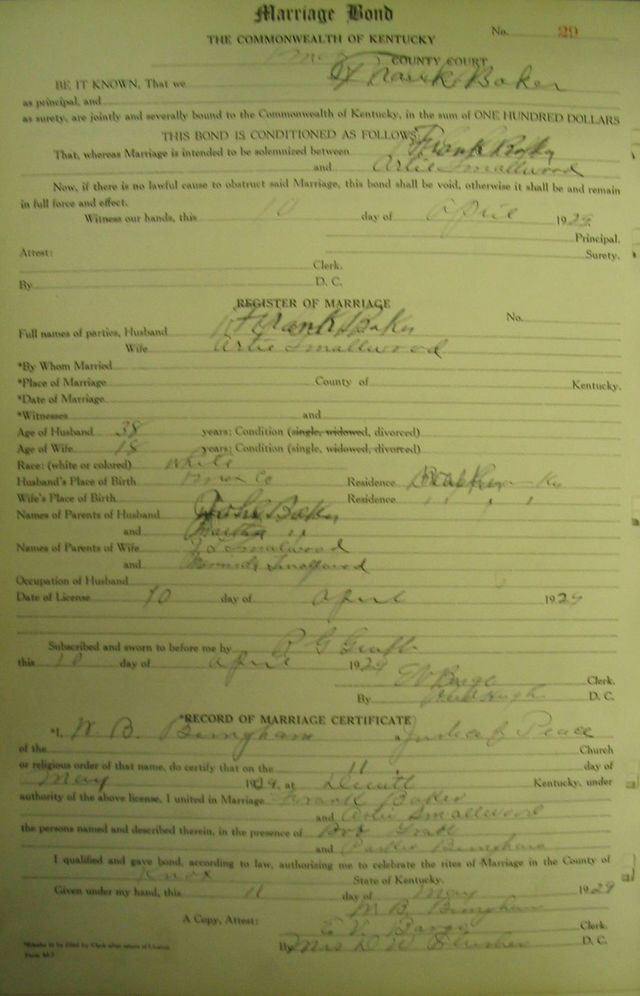 Marriage Bond
No. 29
THE COMMONWEALTH OF KENTUCKY
COUNTY COURT
BE IT KNOWN, That we Frank Baker
as principal, and
as surety, are jointly and severally bound to the Commonwealth of Kentucky, in the sum of ONE HUNDRED DOLLARS
THIS BOND IS CONDITIONED AS FOLLOWS:
That, whereas Marriage is intended to be solemnized between Frank Baker
and Artie Smallwood
Now, if there is no lawful cause to obstruct said Marriage, this bond shall be void, otherwise it shall be and remain
in full force and effect.
Witness our hands, this 10 day of April 1929.
Principal.
Attest: Surety.
Clerk.
By D. C.
REGISTER OF MARRIAGE
No.
Full names of parties, Husband Frank Baker
Wife Artie Smallwood
*By Whom Married
*Place of Marriage County of Kentucky.
*Date of Marriage
*Witnesses and
Age of Husband 38 years; Condition (single, widowed, divorced)
Age of Wife 18 years; Condition (single, widowed, divorced)
Race: (white or colored) White
Husband's Place of Birth Knox Co Residence Ky
Wife's Place of Birth Residence " " "
Names of Parents of Husband Baker
and Martha "
Names of Parents of Wife Smallwood
and Smallwood
Occupation of Husband
Date of License 10 day of April 1929
Subscribed and sworn to before me by
this 10 day of April 1929
Clerk.
By D. C.
*RECORD OF MARRIAGE CERTIFICATE
*I, W. B. Bingham Justice of Peace
of the Church
or religious order of that name, do certify that on the 11 day of
May 1929, at Dewitt Kentucky, under
authority of the above license, I united in Marriage Frank Baker
and Artie Smallwood
the persons named and described therein, in the presence of
and Bingham
I qualified and gave bond, according to law, authorizing me to celebrate the rites of Marriage in the County of
Knox State of Kentucky.
Given under my hand, this 11 day of May 1929
W. B. Bingham
A Copy, Attest: Clerk.
By Mrs D W Slusher D. C.